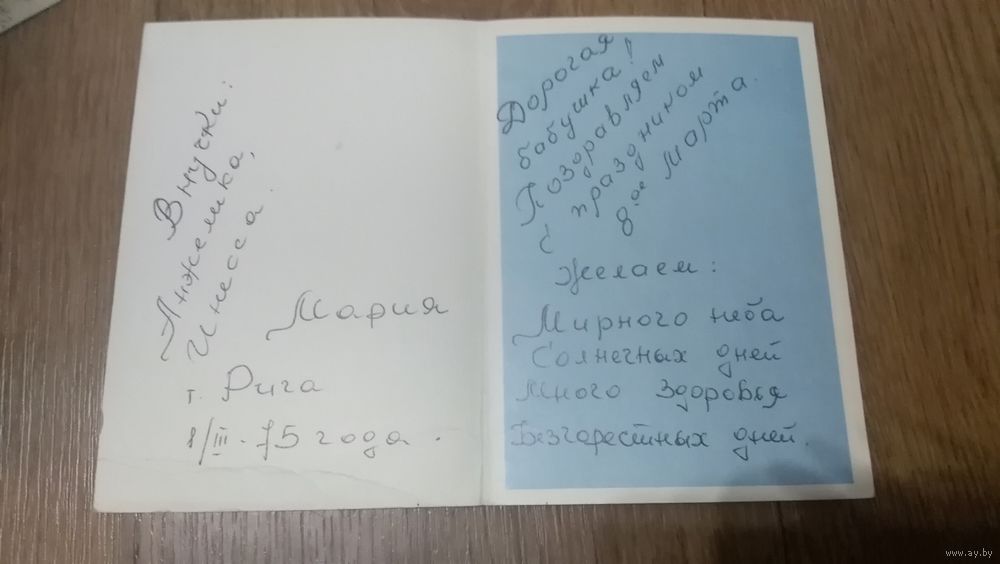 Внучки:
Анжелика,
Инесса.
Мария
г. Рига
8/III-75 года.
Дорогая
бабушка!
Поздравляем
с праздником
8ое Марта.
Желаем:
Мирного неба
Солнечных дней
Много здоровья
Безгорестных дней.
www.ay.by